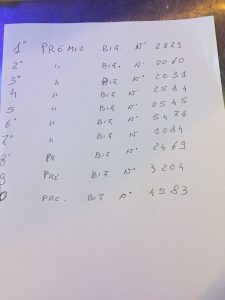 1° PREMIO BIG. N° 2873
2° " BIG. N° 0060
3° " BIG N° 2031
4 " BIG N° 2584
5 " BIG N° 0545
6° " BIG N° 5478
7° " BIG N° 1084
8° PR BIG N° 2469
9 PRE. BIG N° 3204
0 PRE. BIG N° 4583